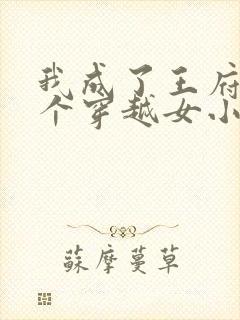 我成了王府
个穿越女小
蘇摩蔓草